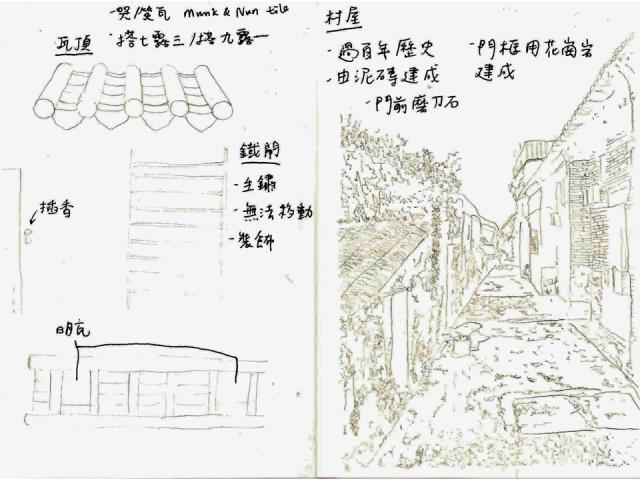 瓦頂
- 哭/笑瓦 Munk & Nun tile
- 搭七露三/搭九露一
插香
鐵閘
- 生鏽
- 無法移動
- 裝飾
明瓦
村屋
- 過百年歷史
- 由泥磚建成
- 門前磨刀石
- 門框用花崗岩
建成